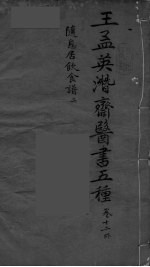 王孟英潛齋醫書五種 卷十二
隨息居飲食譜上